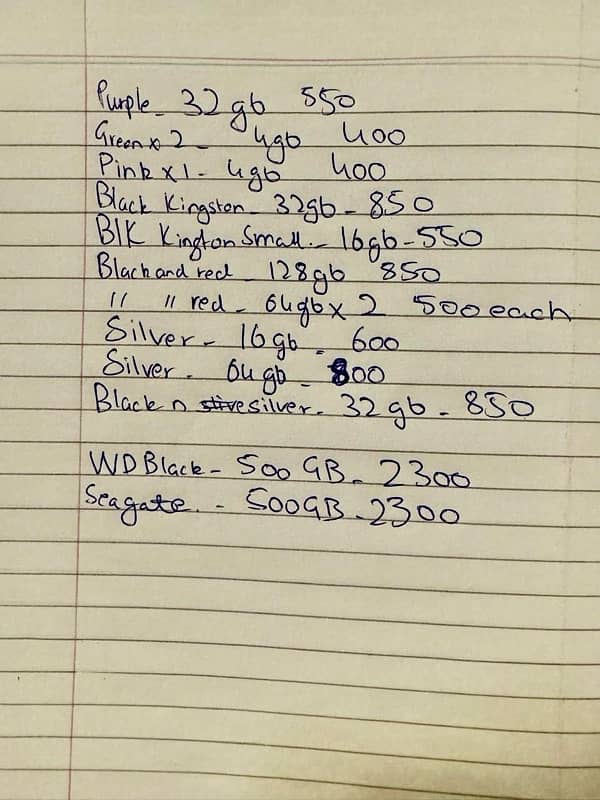 Purple - 32 gb 550
Green x 2 - 4gb 400
Pink x 1 - 4gb 400
Black Kingston - 32gb - 850
Blk Kington Small. - 16gb - 550
Black and red - 128gb 850
" " red - 64gb x 2 500 each
Silver - 16 gb - 600
Silver - 64 gb - 800
Black n stive silver - 32 gb - 850
WD Black - 500 GB - 2300
Seagate. - 500GB - 2300